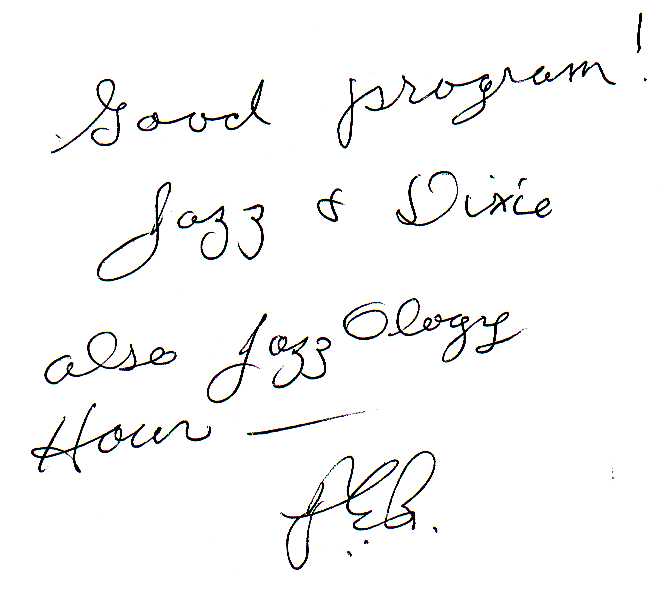 Good program!
Jazz & Dixie
also JazzOlogy
Hour —